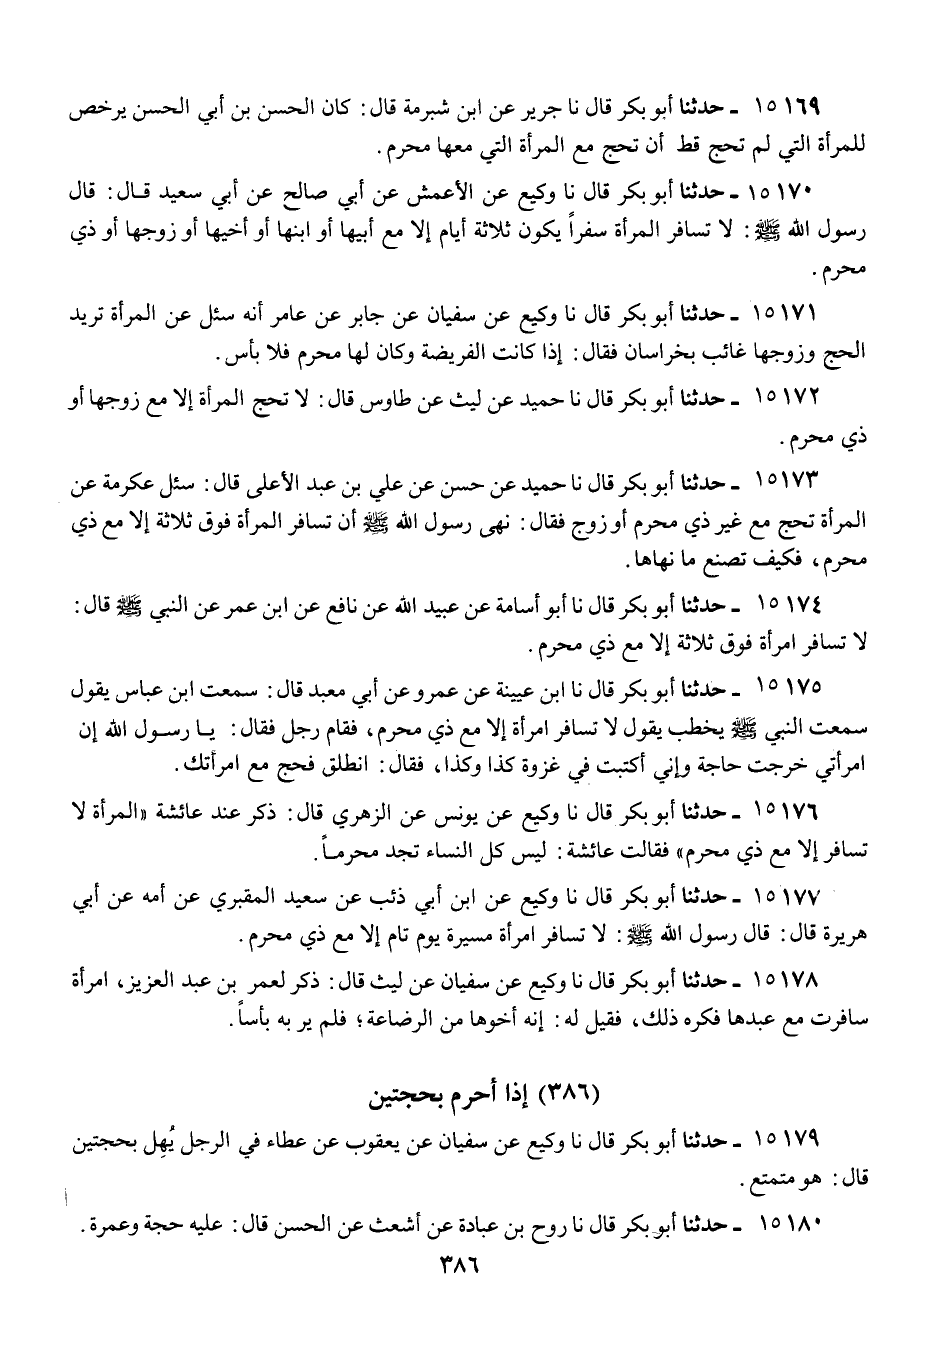 ١٥١٦٩ - حدثنا أبو بكر قال نا جرير عن ابن شبرمة قال: كان الحسن بن أبي الحسن يرخص
للمرأة التي لم تحج قط أن تحج مع المرأة التي معها محرم.
١٥١٧٠ - حدثنا أبو بكر قال نا وكيع عن الأعمش عن أبي صالح عن أبي سعيد قـال: قال
رسول الله ﷺ: لا تسافر المرأة سفراً يكون ثلاثة أيام إلا مع أبيها أو ابنها أو أخيها أو زوجها أو ذي
محرم.
١٥١٧١ - حدثنا أبو بكر قال نا وكيع عن سفيان عن جابر عن عامر أنه سئل عن المرأة تريد
الحج وزوجها غائب بخراسان فقال: إذا كانت الفريضة وكان لها محرم فلا بأس.
١٥١٧٢ - حدثنا أبو بكر قال نا حميد عن ليث عن طاوس قال: لا تحج المرأة إلا مع زوجها أو
ذي محرم.
١٥١٧٣ - حدثنا أبو بكر قال نا حميد عن حسن عن علي بن عبد الأعلى قال: سئل عكرمة عن
المرأة تحج مع غير ذي محرم أو زوج فقال: نهى رسول الله ﷺ أن تسافر المرأة فوق ثلاثة إلا مع ذي
محرم، فكيف تصنع ما نهاها.
١٥١٧٤ - حدثنا أبو بكر قال نا أبو أسامة عن عبيد الله عن نافع عن ابن عمر عن النبي ﷺ قال:
لا تسافر امرأة فوق ثلاثة إلا مع ذي محرم.
١٥١٧٥ - حدثنا أبو بكر قال نا ابن عيينة عن عمرو عن أبي معبد قال: سمعت ابن عباس يقول
سمعت النبي ﷺ يخطب يقول لا تسافر امرأة إلا مع ذي محرم، فقام رجل فقال: يـا رسـول الله إن
امرأتي خرجت حاجة وإني أكتبت في غزوة كذا وكذا، فقال: انطلق فحج مع امرأتك.
١٥١٧٦ - حدثنا أبو بكر قال نا وكيع عن يونس عن الزهري قال: ذكر عند عائشة «المرأة لا
تسافر إلا مع ذي محرم» فقالت عائشة: ليس كل النساء تجد محرمـاً.
١٥١٧٧ - حدثنا أبو بكر قال نا وكيع عن ابن أبي ذئب عن سعيد المقبري عن أمه عن أبي
هريرة قال: قال رسول الله ﷺ: لا تسافر امرأة مسيرة يوم تام إلا مع ذي محرم.
١٥١٧٨ - حدثنا أبو بكر قال نا وكيع عن سفيان عن ليث قال: ذكر لعمر بن عبد العزيز، امرأة
سافرت مع عبدها فكره ذلك، فقيل له: إنه أخوها من الرضاعة؛ فلم ير به بأساً.
(٣٨٦) إذا أحرم بحجتين
١٥١٧٩ - حدثنا أبو بكر قال نا وكيع عن سفيان عن يعقوب عن عطاء في الرجل يُهِل بحجتين
قال: هو متمتع.
١٥١٨٠ - حدثنا أبو بكر قال نا روح بن عبادة عن أشعث عن الحسن قال: عليه حجة وعمرة.
٣٨٦